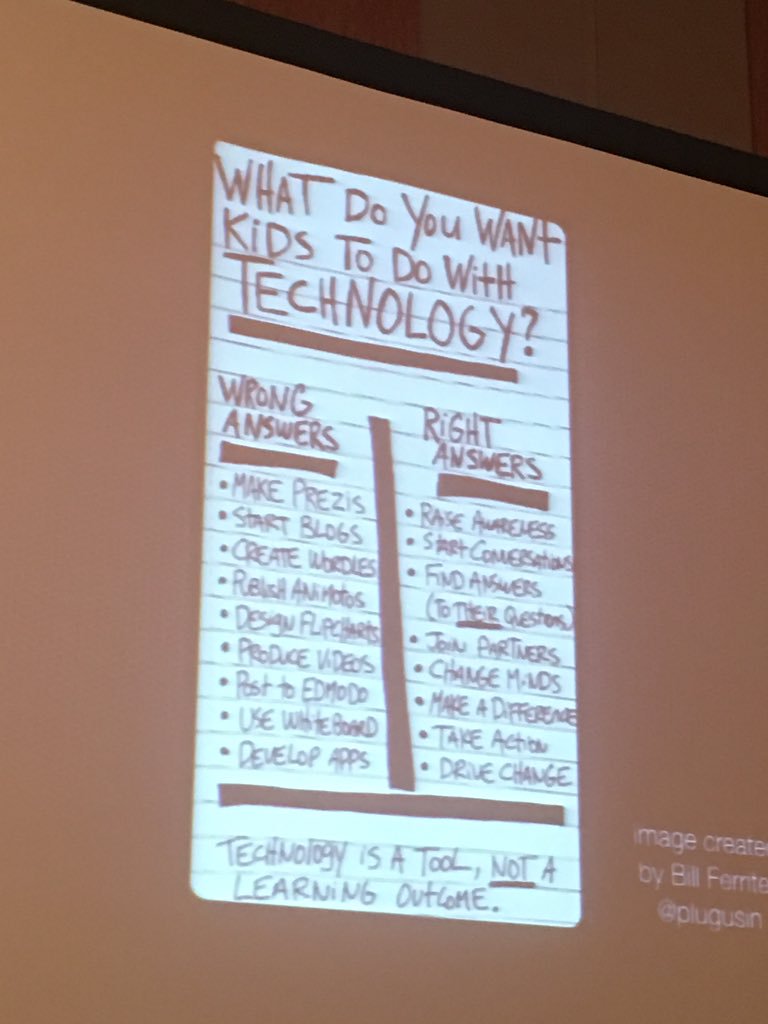 WHAT DO YOU WANT
KiDS TO DO WiTH
TECHNOLOGY?
WRONG
ANSWERS
• MAKE PREZIS
• START BLOGS
• CREATE WORDLES
• PUBLISH ANIMOTOS
• DESIGN FLIPCHARTS
• PRODUCE VIDEOS
• POST to EDMODO
• USE WHITEBOARD
• DEVELOP APPS
RiGHT
ANSWERS
• RAISE AWARENESS
• START CONVERSATIONS
• FIND ANSWERS
(TO THEIR QUESTIONS)
• JOIN PARTNERS
• CHANGE MINDS
• MAKE A DIFFERENCE
• TAKE ACTION
• DRIVE CHANGE
TECHNOLOGY IS A TOOL, NOT A
LEARNING OUTCOME.
image create
by Bill Ferrite
@plugusin